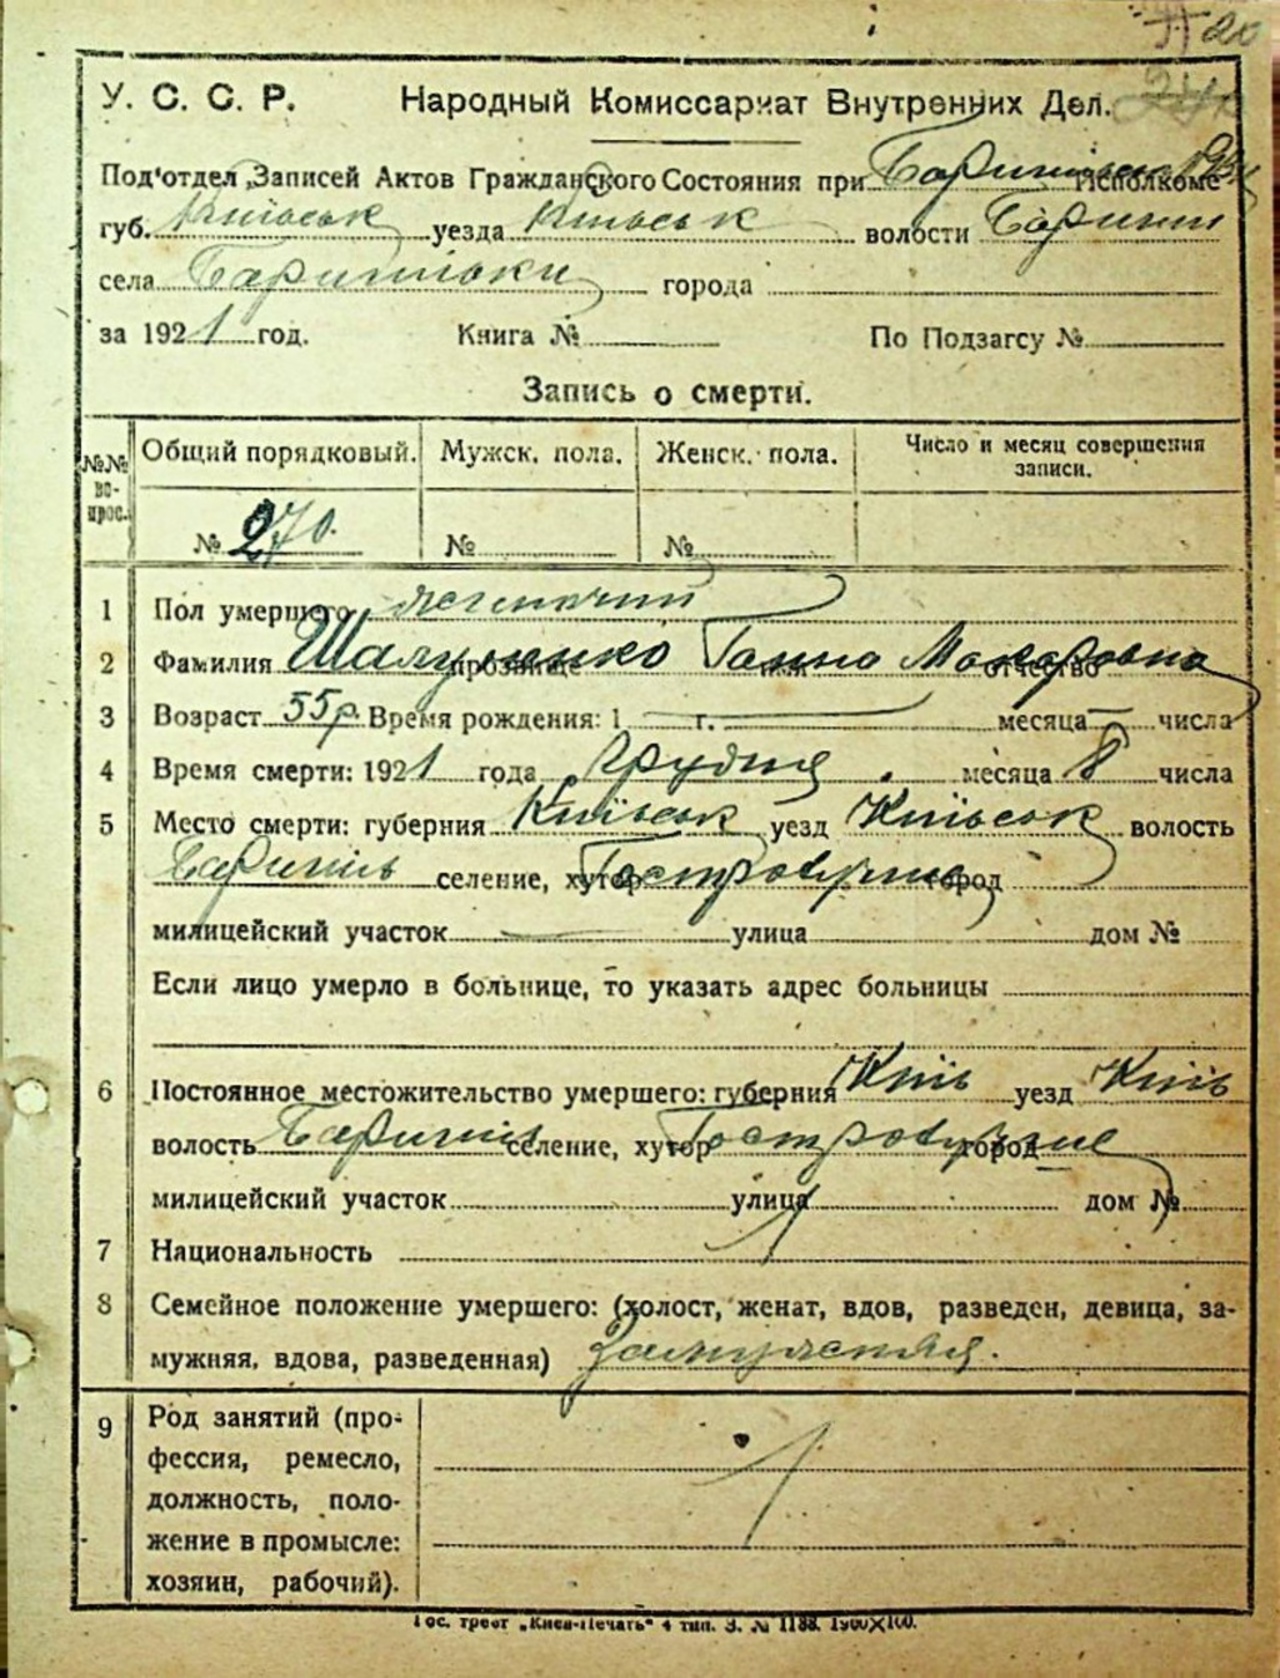 20
У. С. С. Р. Народный Комиссариат Внутренних Дел.
Под'отдел „Записей Актов Гражданского Состояния при Исполкоме
губ. Київськ уезда Київськ волости Баришп
села Баришівки города
за 1921 год. Книга № По Подзагсу №
Запись о смерти.
№№ вопрос. Общий порядковый. Мужск. пола. Женск. пола. Число и месяц совершения записи.
№ 270. № №
1 Пол умершего жіночий
2 Фамилия прозвище Ганна имя Макаровна отчество
3 Возраст 55 р. Время рождения: 1 — г. — месяца — числа
4 Время смерти: 1921 года Грудня месяца 8 числа
5 Место смерти: губерния Київськ уезд Київськ волость
селение, хутор город
милицейский участок — улица дом №
Если лицо умерло в больнице, то указать адрес больницы
6 Постоянное местожительство умершего: губерния Київ уезд Київ
волость селение, хутор город
милицейский участок улица дом №
7 Национальность
8 Семейное положение умершего: (холост, женат, вдов, разведен, девица, за-
мужняя, вдова, разведенная) Замужняя.
9 Род занятий (про-
фессия, ремесло,
должность, поло-
жение в промысле:
хозяин, рабочий).
Гос. трест „Киев-Печать" 4 тип. З. № 1188. 1900×100.